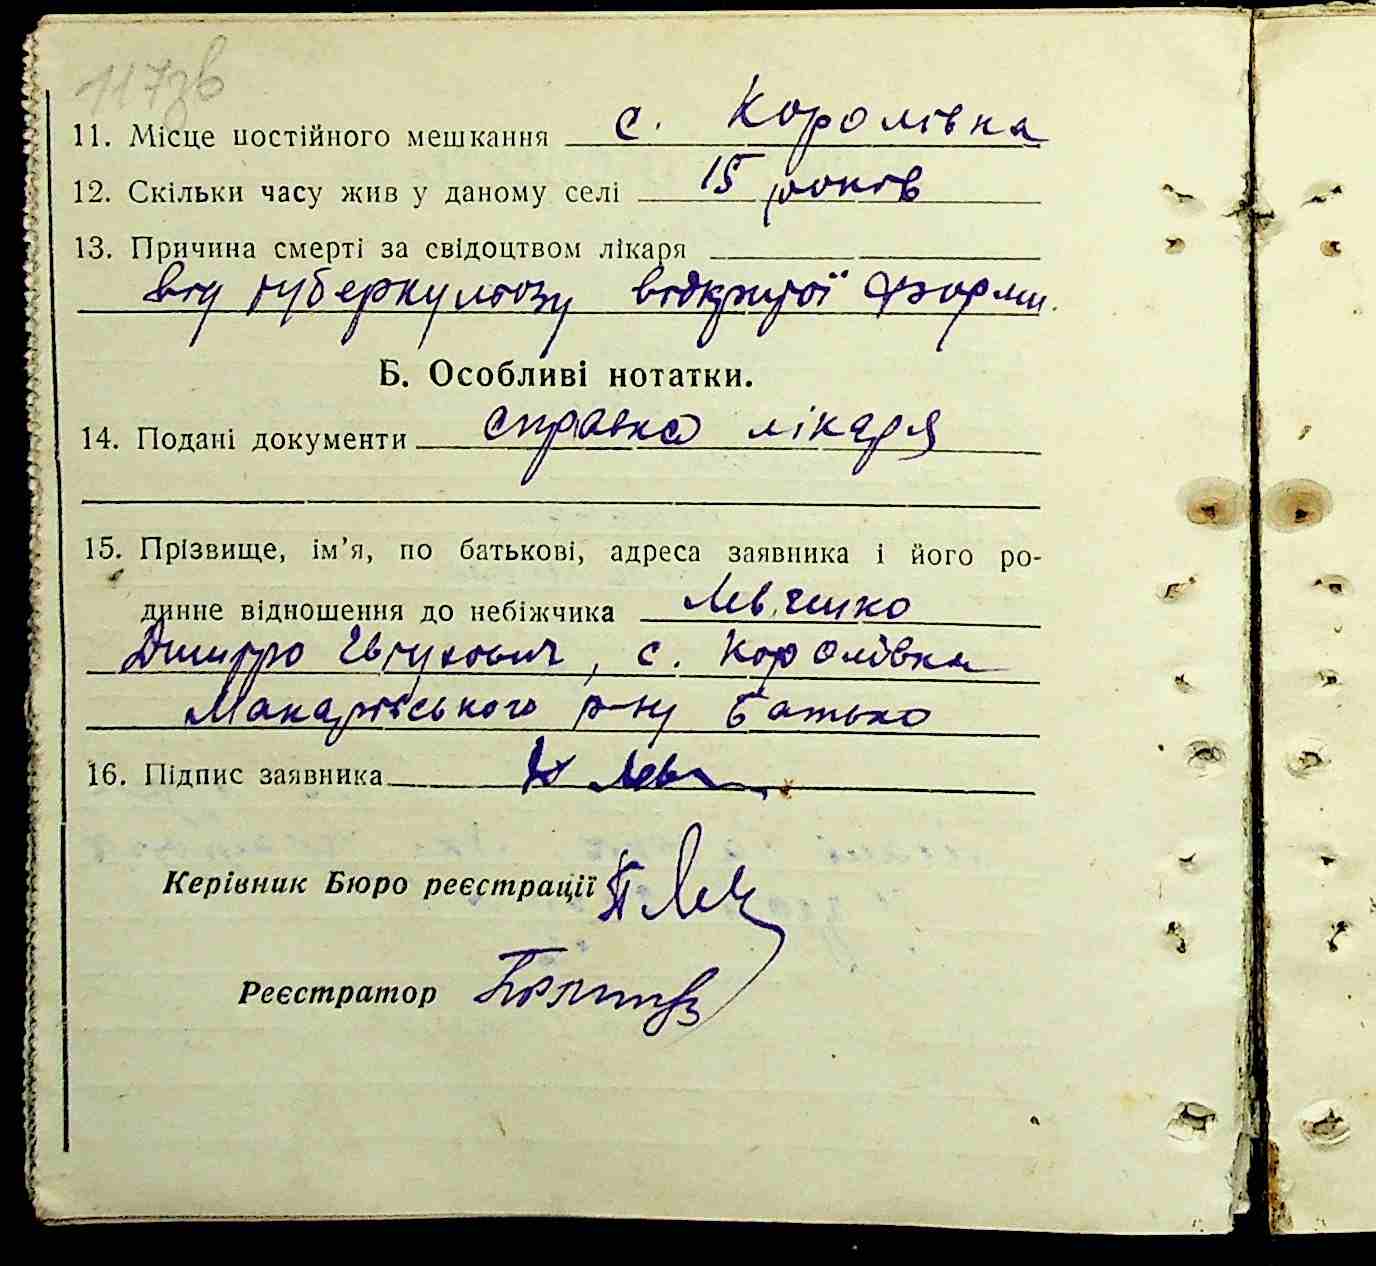 117зв
11. Місце постійного мешкання с. Королівка
12. Скільки часу жив у даному селі 15 років
13. Причина смерті за свідоцтвом лікаря
від туберкульозу відкритої форми.
Б. Особливі нотатки.
14. Подані документи справка лікаря
15. Прізвище, ім’я, по батькові, адреса заявника і його ро-
динне відношення до небіжчика Левченко
Дмитро Євтухович, с. Королівка
Макарівського р-ну батько
16. Підпис заявника
Керівник Бюро реєстрації
Реєстратор